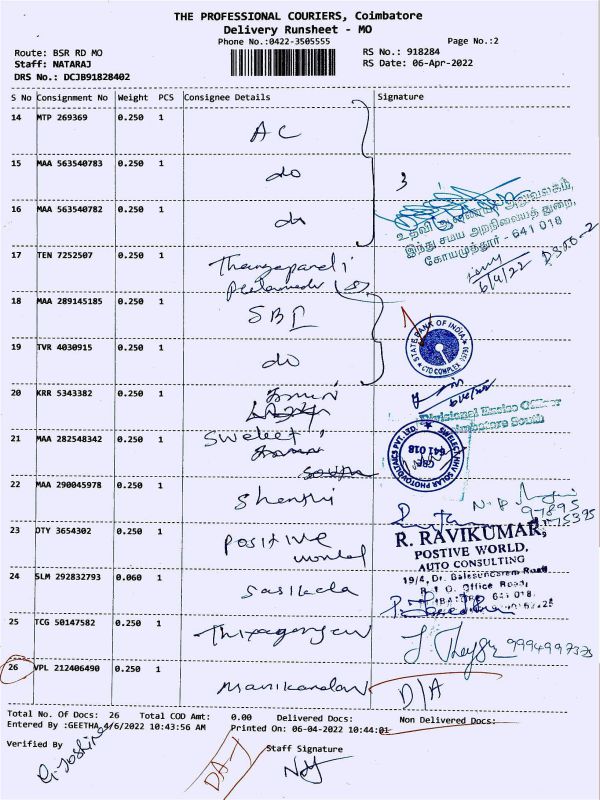 THE PROFESSIONAL COURIERS, Coimbatore
Delivery Runsheet - MO
Phone No.:0422-3505555
Page No.:2
Route: BSR RD MO
RS No.: 918284
Staff: NATARAJ
RS Date: 06-Apr-2022
DRS No.: DCJB91828402
S No Consignment No Weight PCS Consignee Details Signature
14 MTP 269369 0.250 1 AC
15 MAA 563540783 0.250 1 do
3
16 MAA 563540782 0.250 1 do
உதவி ஆணையர் அலுவலகம்,
இந்து சமய அறநிலையத் துறை,
கோயமுத்தூர் - 641 018
6/4/22
17 TEN 7252507 0.250 1
18 MAA 289145185 0.250 1 SBI
STATE BANK OF INDIA
CTO COMPLEX
19 TVR 4030915 0.250 1 do
20 KRR 5343382 0.250 1
21 MAA 282548342 0.250 1 Swelect
Coimbatore South
SWELECT HHV SOLAR PHOTOVOLTAICS PVT. LTD.
CBE
641 018
22 MAA 290045978 0.250 1
23 DTY 3654302 0.250 1 Positive
world
R. RAVIKUMAR,
POSTIVE WORLD,
AUTO CONSULTING
19/4, Dr. Balasundaram Road
R.T.O. Office Road,
641 018
24 SLM 292832793 0.060 1 Sasikala
25 TCG 50147582 0.250 1 Thiyagarajan
26 VPL 212406490 0.250 1 Manikandan D/A
Total No. Of Docs: 26 Total COD Amt: 0.00 Delivered Docs: Non Delivered Docs:
Entered By :GEETHA 4/6/2022 10:43:56 AM Printed On: 06-04-2022 10:44:01
Verified By
Staff Signature
DA-1